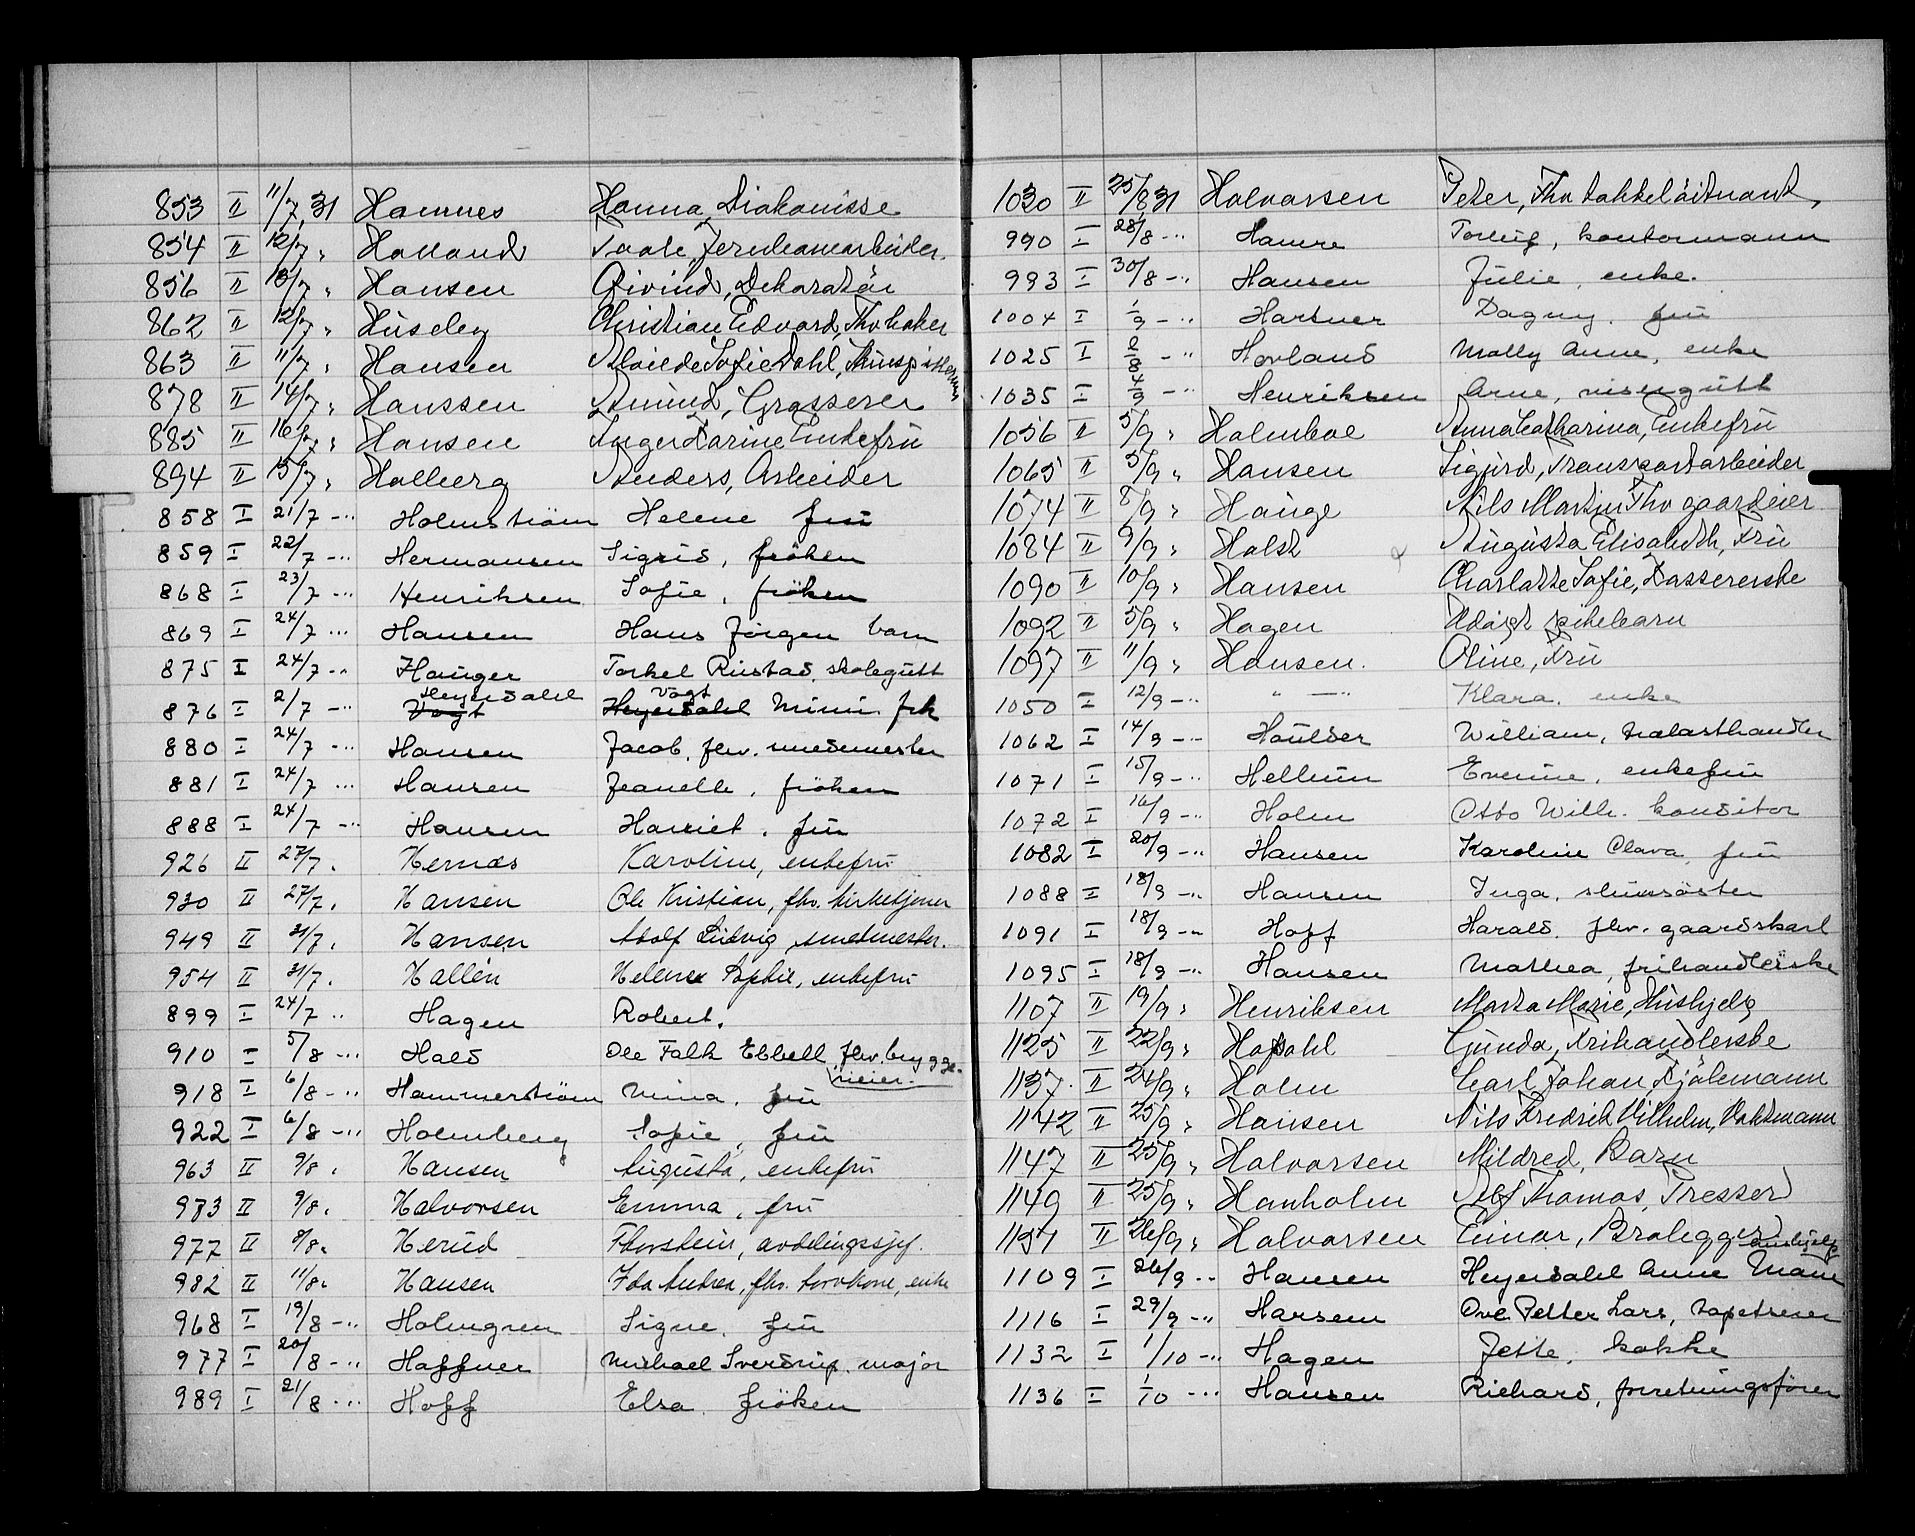 853 II 11/7 31 Hamnes Hanna, Diakonisse
854 II 12/7 " Haaland
856 II 13/7 " Hansen Øivind, Dekoratör
862 II 12/7 " Huseby Christian Edvard, Fhv baker
863 II 11/7 " Hansen Sofie Dahl,
878 II 14/7 " Hanssen Amund, Grosserer
885 II 16/7 " Hansen Inger Karine Enkefru
894 II 15/7 " Halberg Anders, Arbeider
858 I 21/7 -"- Holmström Helene fru
859 I 22/7 -"- Hermansen Sigrid, fröken
868 I 23/7 -"- Henriksen Sofie, fröken
869 I 24/7 -"- Hansen Hans Jörgen barn
875 I 24/7 -"- Hauger Torkel Rustad, skolegutt
Heyerdahl Vogt
876 I 2/7 -"- Vogt Heyerdahl Mimi frk
880 I 24/7 -"- Hansen Jacob, fhv. smedmester
881 I 24/7 -"- Hansen Jeanette, fröken
888 I 24/7 -"- Hansen Harriet, fru
926 II 27/7. Hernæs Karoline, enkefru
930 II 27/7. Hansen Ole Kristian, fhv. kirketjener
949 II 31/7. Hansen Adolf Ludvig, smedmester.
954 II 31/7. Hallén Helene Sophie, enkefru
899 I 24/7 -"- Hagen Robert.
910 I 5/8 -"- Hald Ole Falk Ebbell fhv. brygge-
eier.
918 I 6/8 -"- Hammerström Mina, fru
922 I 6/8 -"- Holmberg Sofie, fru
963 II 9/8. Hansen Augusta, enkefru
973 II 9/8. Halvorsen Emma, fru
977 II 8/8. Herud Thorstein, avdelingssjef.
982 II 11/8. Hansen Ida Andrea, fhv. torvkone, enke
968 I 19/8 -"- Holmgren Signe, fru
977 I 20/8 -"- Haffner Michael Sverdrup, major
989 I 21/8 -"- Hoff Elsa, fröken
1030 II 25/8 31 Halvorsen Peter, Fhv taktelöitnant,
990 I 28/8 -"- Hamre Torleif, kontormann
993 I 30/8 -"- Hansen Julie, enke.
1004 I 1/9 -"- Hartner Dagny, fru
1025 I 2/9 -"- Hovland Molly Anne, enke
1035 I 4/9 -"- Henriksen Arne, visergutt
1056 II 5/9 " Holmboe Anna Catharina, Enkefru
1065 II 5/9 " Hansen Sigurd, Transportarbeider
1074 II 8/9 " Hauge Nils Martin Fhv gaardeier
1084 II 9/9 " Holst Augusta Elisabeth, Fru
1090 II 10/9 " Hansen Charlotte Sofie, Kassererske
1092 II 5/9 " Hagen Udöpt pikebarn
1097 II 11/9 " Hansen. Oline, Fru
1050 I 12/9 -"- " -"- Klara, enke
1062 I 14/9 -"- Houlder William, ballasthandler
1071 I 15/9 -"- Hellum Evenine, enkefru
1072 I 16/9 -"- Holm Otto Wilh. konditor
1082 I 20/9 -"- Hansen Karoline Clava, fru
1088 I 18/9 -"- Hansen Inga,
1091 I 18/9 -"- Hoff Harald, fhv. gaardskarl
1095 I 18/9 -"- Hansen Mathea, frihandlerske
1107 II 19/9 " Henriksen Marta Marie, Hushjelp
1125 II 22/9 " Hofdahl Gunda, Frihandlerske
1137. II 24/9 " Holm Carl Johan, Sjömann
1142 II 25/9 " Hansen Nils Fredrik Vilhelm, Vaktmann
1147 II 25/9 " Halvorsen Mildred, Barn
1149 II 25/9 " Hanholm Alf Thomas, Presser
1151 II 26/9 " Halvorsen Einar, Brolegger
1109 I 26/9 -"- Hansen Heyerdahl Anne Marie hushjelp
1116 I 29/9 -"- Hansen Ove Petter Lars, tapetserer
1132 I 1/10 -"- Hagen Jette, kokke
1136 I 1/10 -"- Hansen Richard, forretningsförer